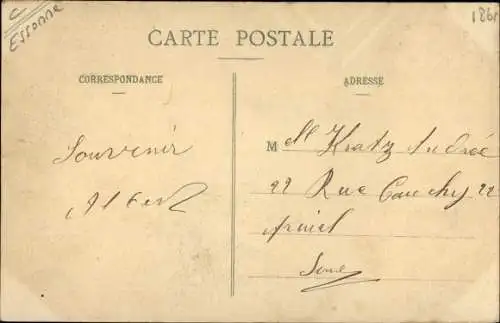 C
Essonne
186
CARTE POSTALE
CORRESPONDANCE
Souvenir
Albert
ADRESSE
Mell Kratz Andrée
22 Rue Cauchy 22
Seine